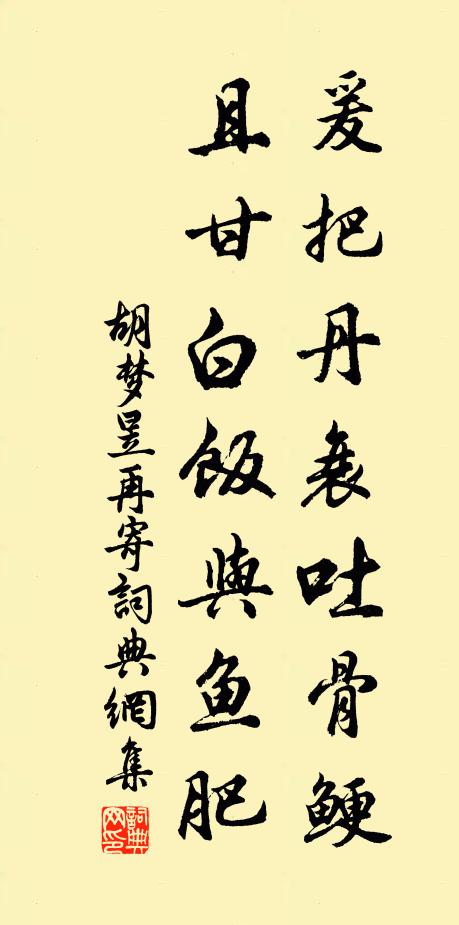 爰把丹衷吐骨鲠
且甘白饭與鱼肥
胡梦昱再寄詞典網集
詞典网印